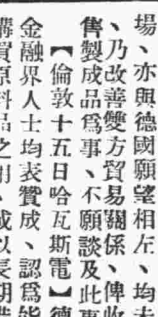 場、亦與德國願望相左、均未
、乃改善雙方貿易關係、俾收
售製成品爲事、不願談及此事
【倫敦十五日哈瓦斯電】德
金融界人士均表贊成、認爲能
購買原料品之用、或以長期